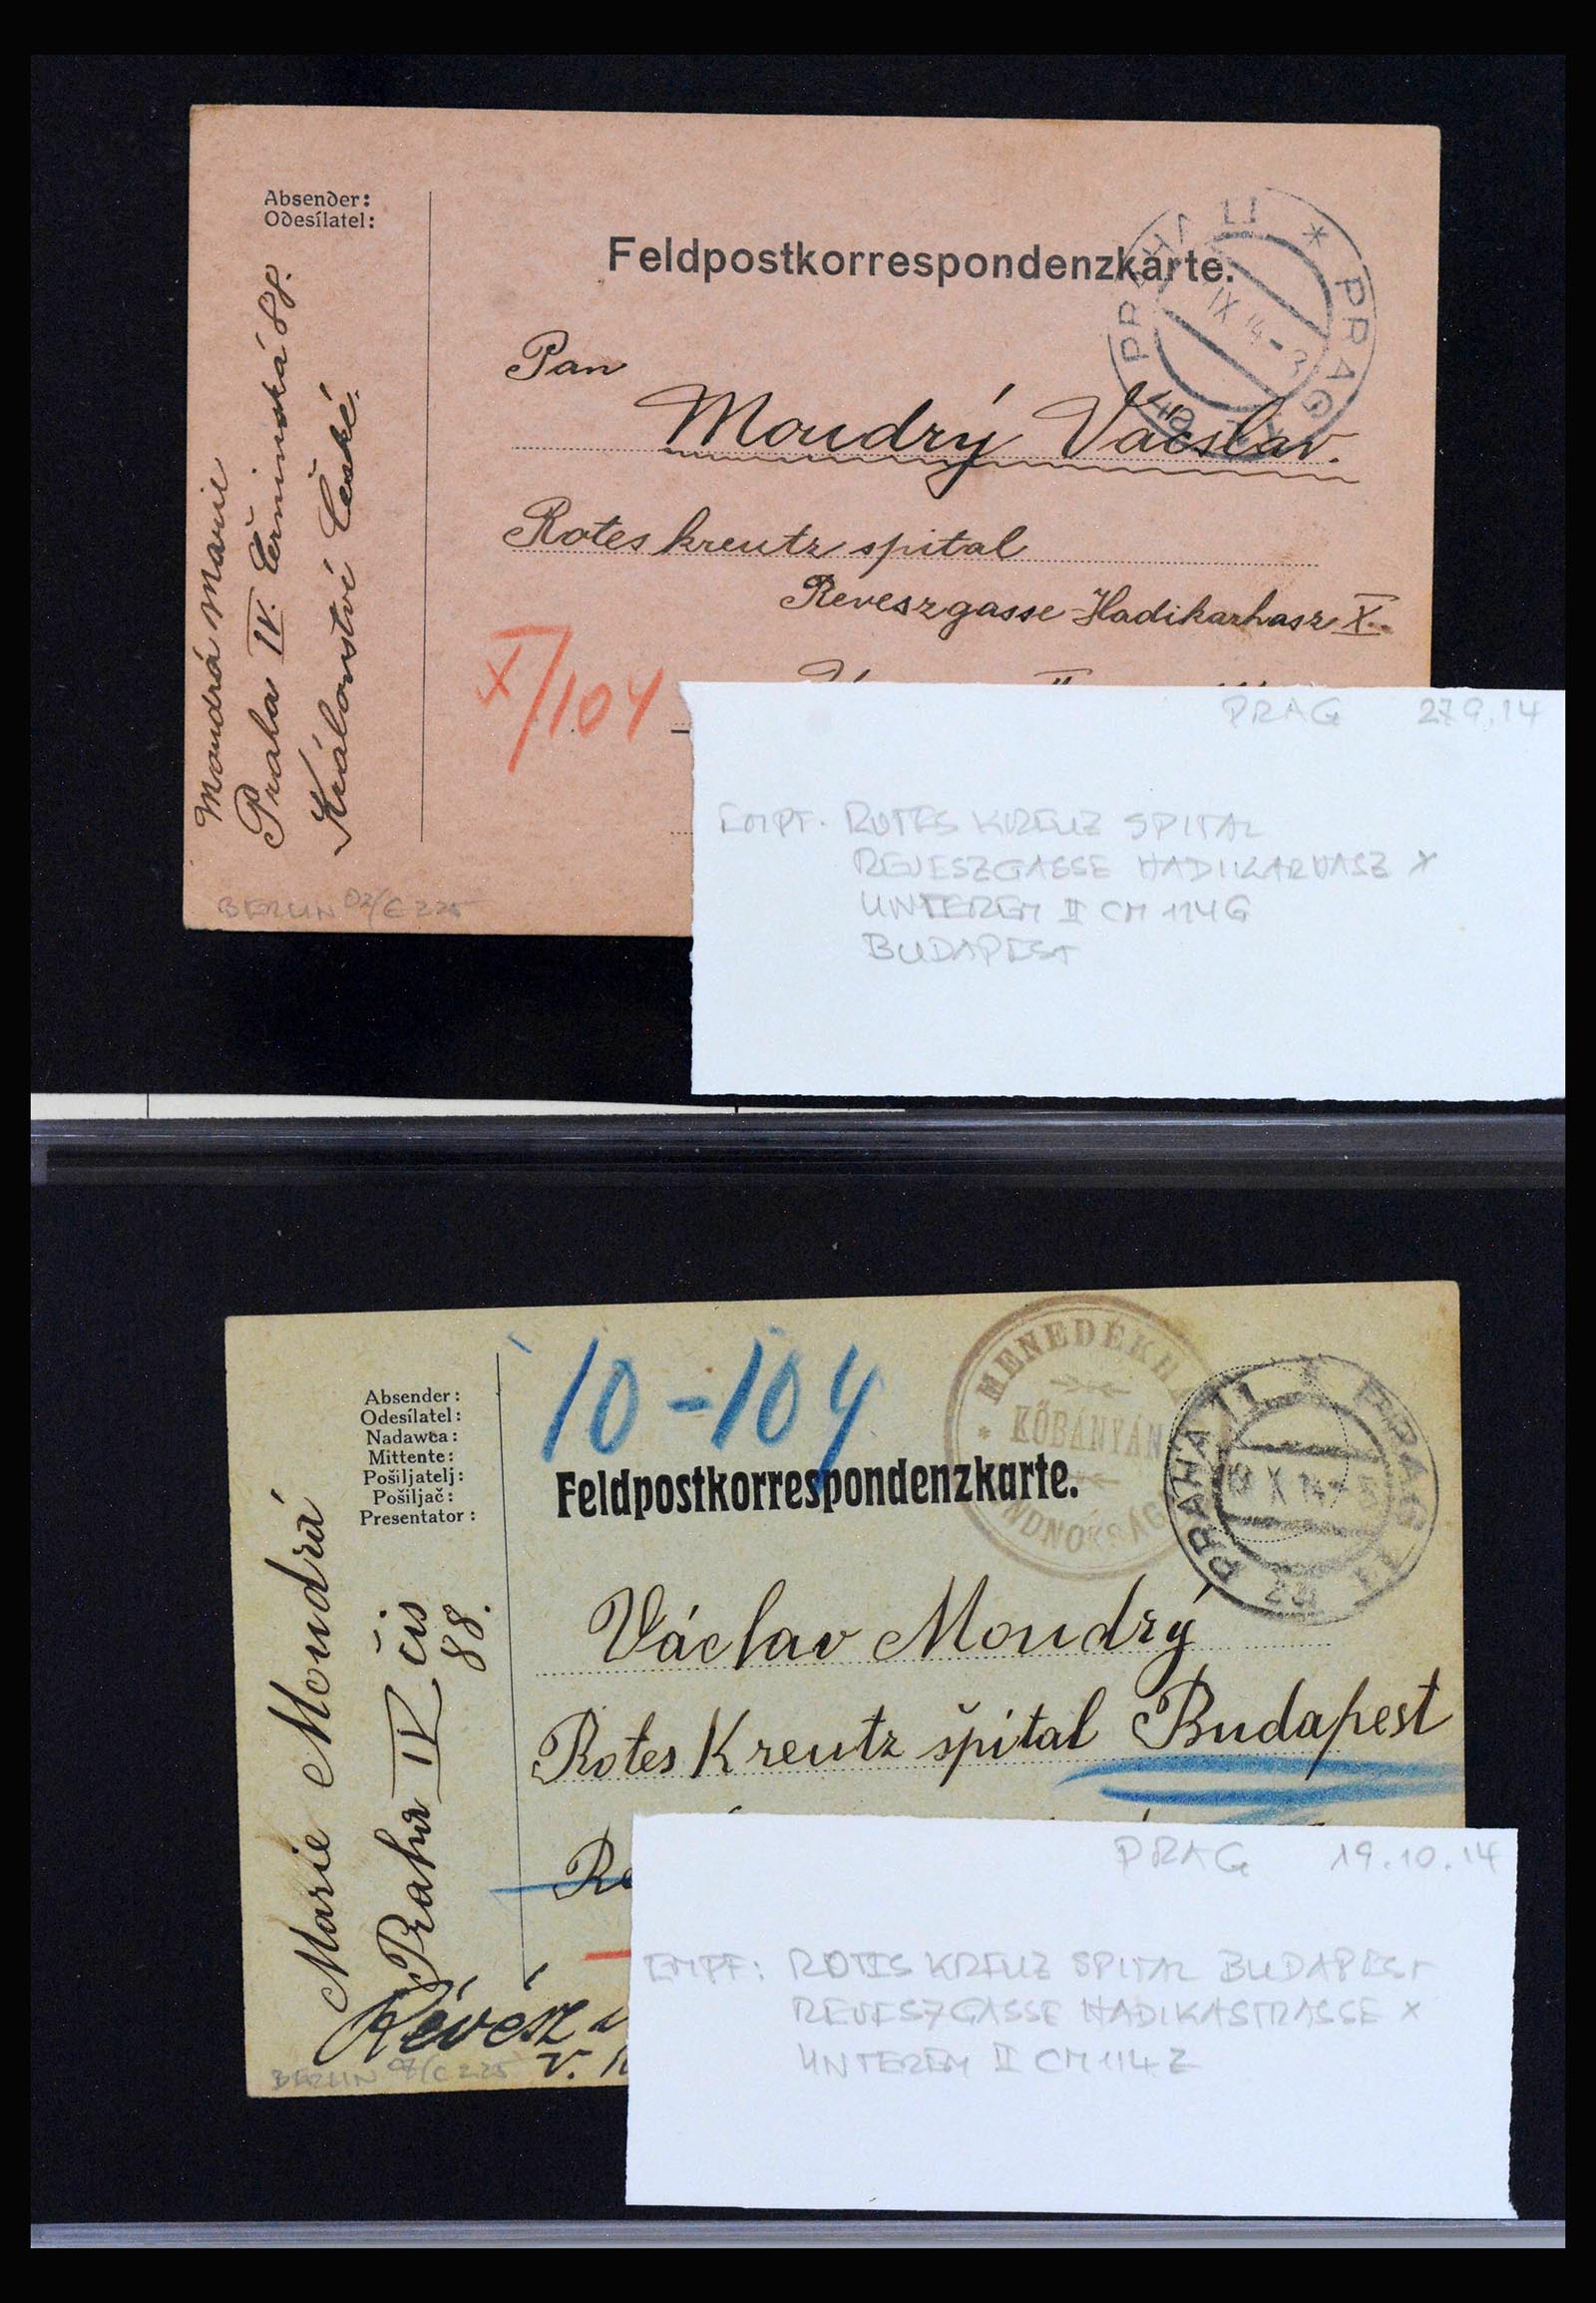 Absender:
Odesílatel:
Moudrá Marie
Praha IV. Černinská 88.
Království České.
Feldpostkorrespondenzkarte.
PRAHA 11 * PRAG 11
IX 14 - 3
Pan
Moudrý Václav.
Rotes kreutz spital
Reveszgasse Hadikarhasz X.
X/104
BERLIN 07/C 225
PRAG 27 9.14
EMPF. ROTES KREUZ SPITAL
REVESZGASSE HADIKARHASZ X
UNTEREM II CM 114 G
BUDAPEST
10-104
MENEDÉKH
KŐBÁNYÁN
NDNOKSÁG
PRAHA 11 * PRAG 11
X 14
Absender:
Odesílatel:
Nadawca:
Mittente:
Pošiljatelj:
Pošiljač:
Presentator:
Marie Moudrá
Praha IV čis
88.
Feldpostkorrespondenzkarte.
Václav Moudrý
Rotes Kreutz špital Budapest
Re
Révész u
v.
BERLIN 07/C 225
PRAG 19.10.14
EMPF: ROTES KREUZ SPITAL BUDAPEST
REVESZGASSE HADIKASTRASSE X
UNTEREM II CM 114 Z